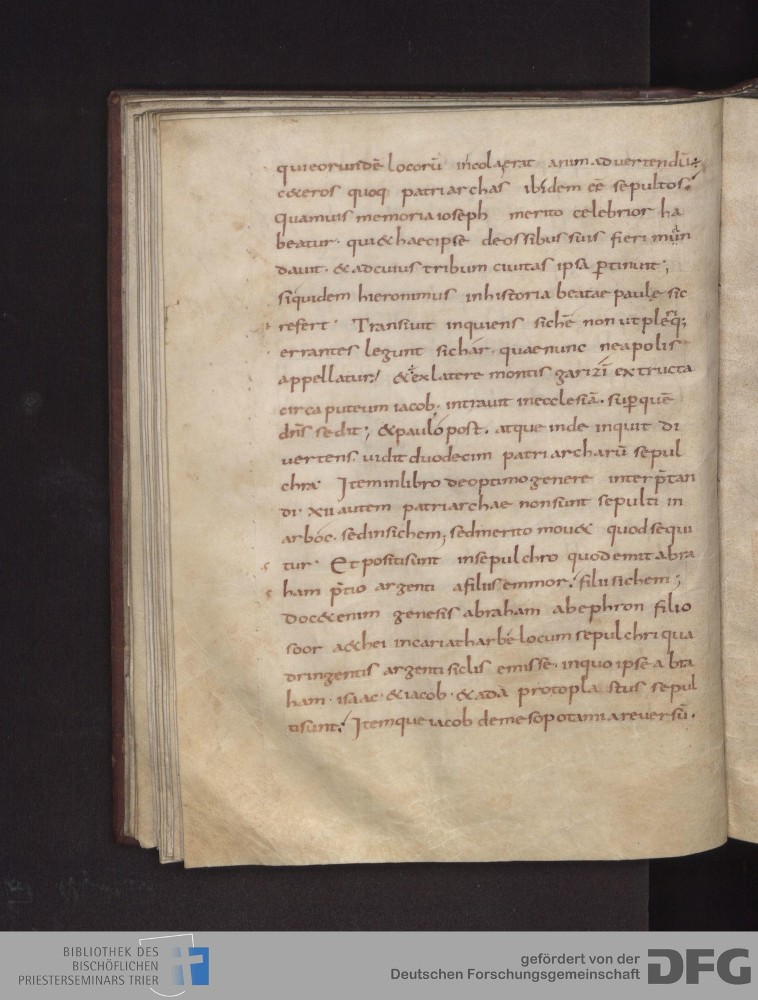 quieorundē locorū incola erat animaduertendū;
c&eros quoq patriarchas ibidem eē sepultos;
quamuis memoria ioseph merito celebrior ha
beatur. qui & haec ipse de ossibus suis fieri mun
dauit. & ad cuius tribum ciuitas ipsa ptinuit;
siquidem hieronimus in historia beatae paule sic
refert. Transiuit inquiens sichē non ut pleq;
errantes legunt sichar. quae nunc neapolis
appellatur; & ex latere montis garizī extructa
circa puteum iacob. intrauit in ecclesiā. sup quē
dn̄s sedit; & paulo post. atque inde inquit di
uertens. uidit duodecim patriarcharū sepul
chra. Item in libro de optimo genere interp̄tan
di. xii autem patriarchae non sunt sepulti in
arboc. sed in sichem; sed merito mou& quod sequi
tur. Et positi sunt in sepulchro quod emit abra
ham p̄tio argenti a filiis emmor. filii sichem;
doc& enim genesis abraham ab ephron filio
soor a&hei in cariatharbe locum sepulchri qua
dringentis argenti siclis emisse. in quo ipse abra
ham. isaac. & iacob. & adā protoplastus sepul
ti sunt. Itemque iacob de mesopotamia reuersū.
BIBLIOTHEK DES
BISCHÖFLICHEN
PRIESTERSEMINARS TRIER
gefördert von der
Deutschen Forschungsgemeinschaft
DFG